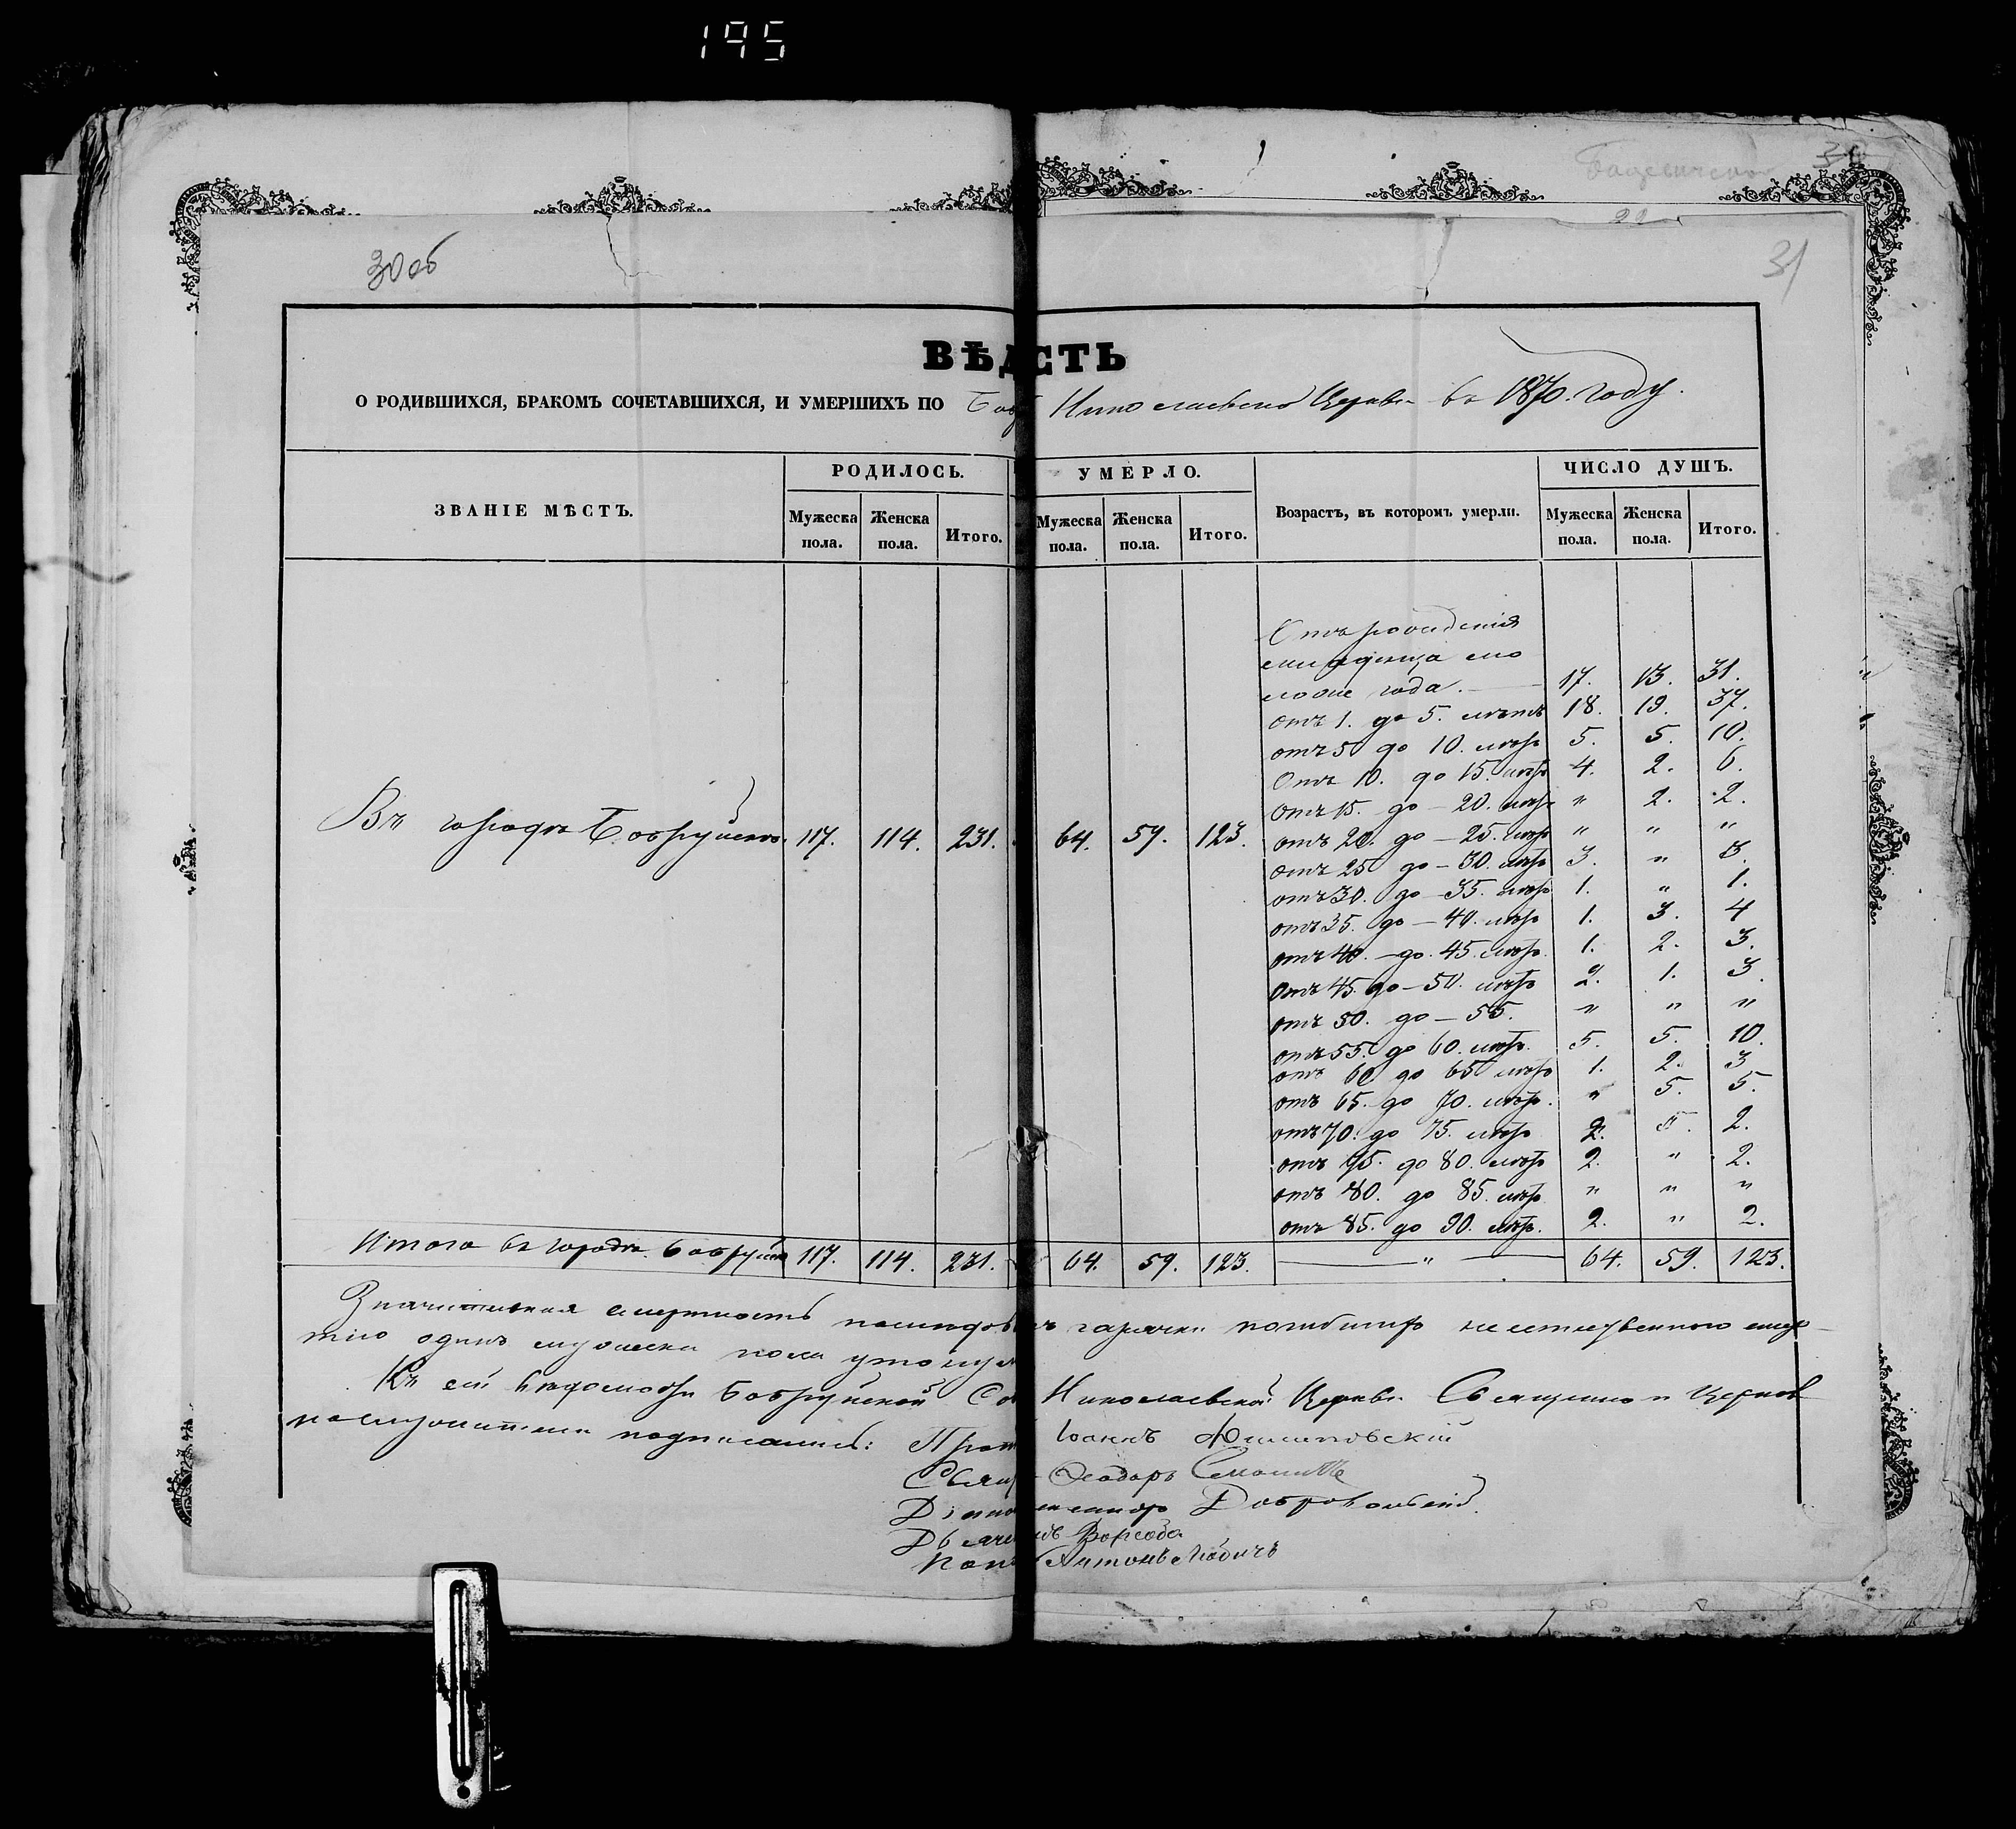 195
30 об
31
ВѢД СТЬ
О РОДИВШИХСЯ, БРАКОМЪ СОЧЕТАВШИХСЯ, И УМЕРШИХЪ ПО Боб Николаевской Церкви въ 1870. году.
ЗВАНІЕ МѢСТЪ. РОДИЛОСЬ. УМЕРЛО. Возрастъ, въ которомъ умерли. ЧИСЛО ДУШЪ.
Мужеска пола. Женска пола. Итого. Мужеска пола. Женска пола. Итого. Мужеска пола. Женска пола. Итого.
Отъ рожденія
младенца мо
ложе года. 17. 13. 31.
отъ 1. до 5. лѣтъ 18. 19. 37.
отъ 5 до 10. лѣтъ 5. 5. 10.
Отъ 10. до 15. лѣтъ 4. 2. 6.
отъ 15. до – 20. лѣтъ " 2. 2.
Въ городѣ Бобруйскѣ. 117. 114. 231. 64. 59. 123. отъ 20. до – 25. лѣтъ " " "
отъ 25 до – 30. лѣтъ 3. " 3.
отъ 30. до – 35. лѣтъ 1. " 1.
отъ 35. до – 40. лѣтъ 1. 3. 4
отъ 40. – до. 45. лѣтъ. 1. 2. 3.
отъ 45. до – 50. лѣтъ 2. 1. 3.
отъ 50. до – 55. " " "
отъ 55. до 60. лѣтъ. 5. 5. 10.
отъ 60 до 65 лѣтъ 1. 2. 3
отъ 65. до 70. лѣтъ. " 5. 5.
отъ 70. до 75. лѣтъ 2. 2.
отъ 75. до 80. лѣтъ 2. " 2.
отъ 80. до 85. лѣтъ " " "
отъ 85. до 90. лѣтъ. 2. " 2.
Итого въ городѣ Бобруйск 117. 114. 231. 64. 59. 123. " 64. 59. 123.
Значительная смертность горячки погибшихъ неестественною смер–
тію одинъ мужеска пола утонул
Къ сей вѣдомости Бобруйской Соб Николаевской Церкви Священно и Церков
нослужители подписались: Прот Іоаннъ
Свящ Ѳеодоръ
Добровольскій.
Антонъ